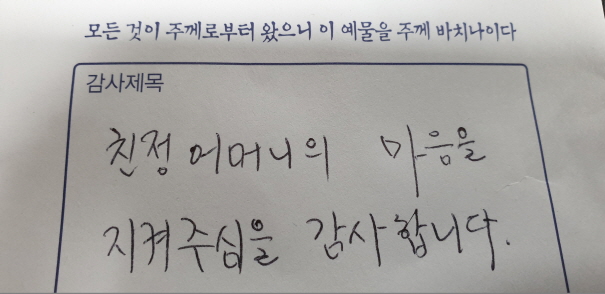 모든 것이 주께로부터 왔으니 이 예물을 주께 바치나이다
감사제목
친정어머니의 마음을
지켜주심을 감사합니다.